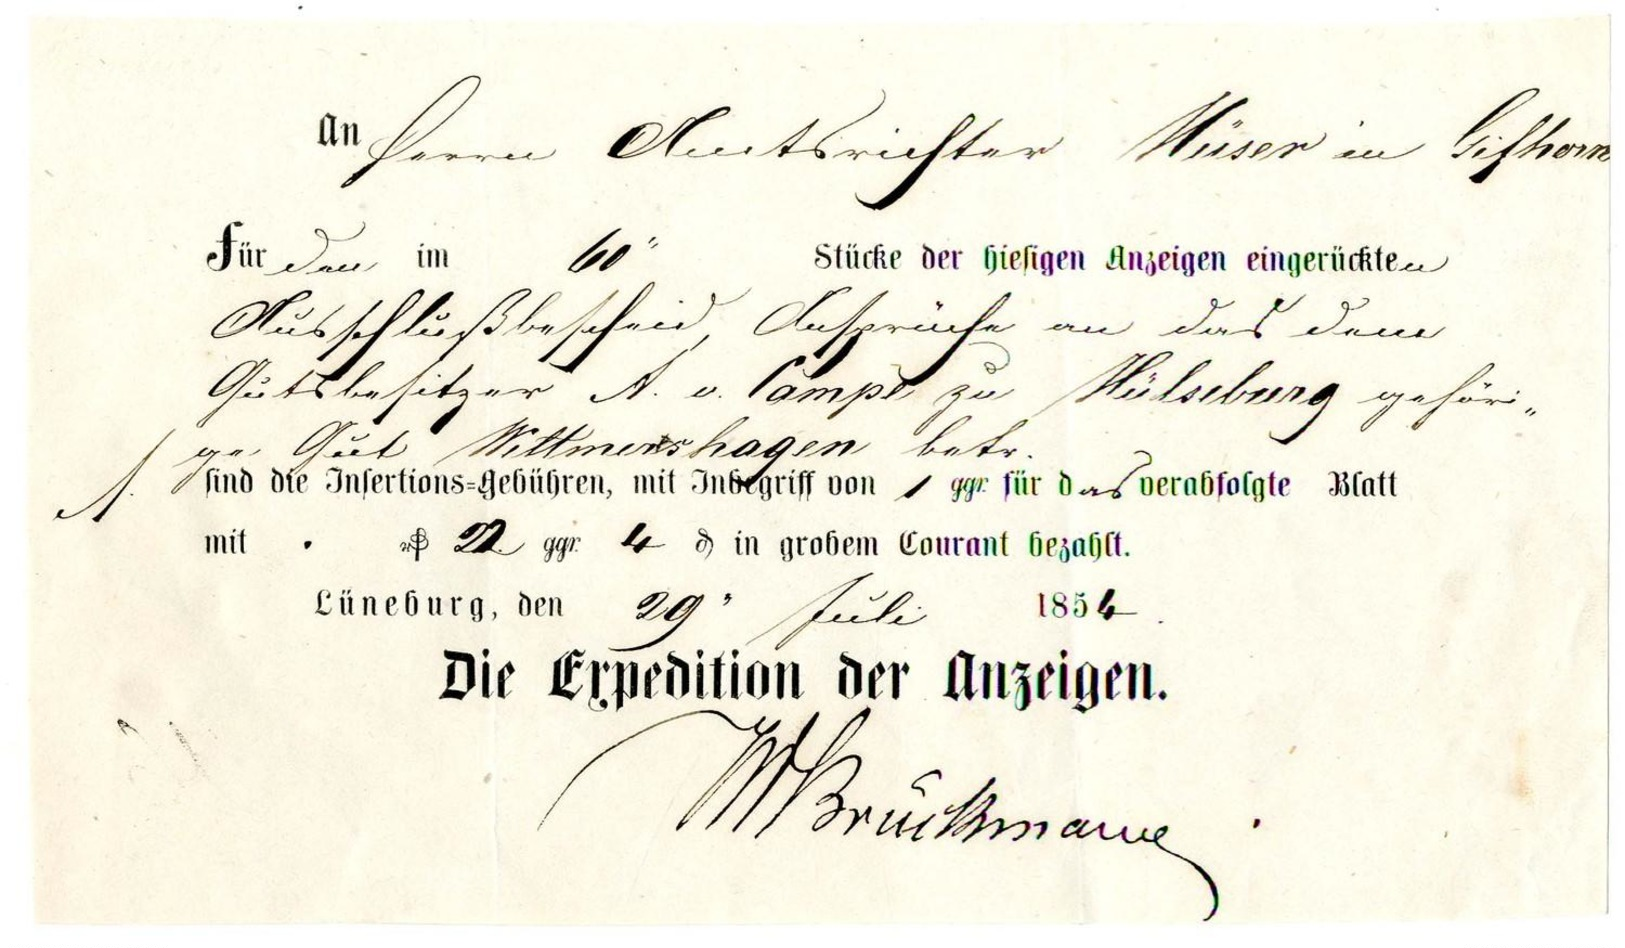 An Herrn Amtsrichter Müser in Gifhorn
Für den im 60" Stücke der hiesigen Anzeigen eingerückten
Ausschlußbescheid, Ansprüche an das dem
Gutsbesitzer A. v. Campe zu Hülseburg gehöri„
ge Gut Wittmershagen betr.
sind die Insertions=Gebühren, mit Inbegriff von 1 ggr. für das verabfolgte Blatt
mit . ggr. 4 ₰ in grobem Courant bezahlt.
Lüneburg, den 29" Juli 1854.
Die Expedition der Anzeigen.
Brückmann